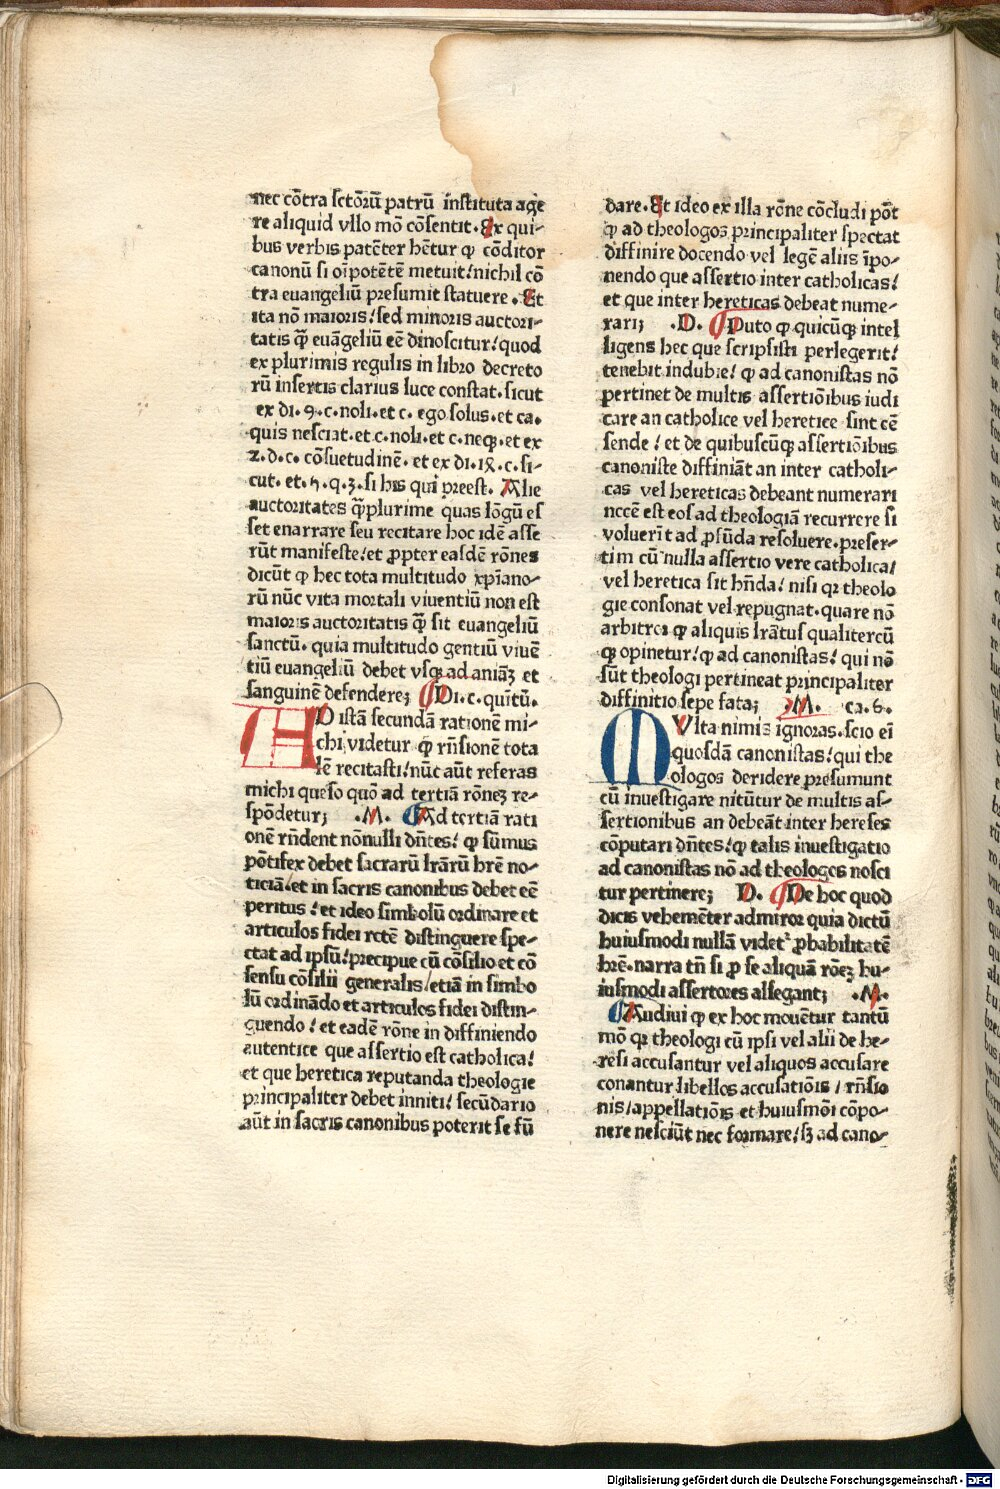 nec cōtra sctōꝝ patrū instituta age
re aliquid vllo mō cōsentit. Ex qui-
bus verbis patēter hētur ꝙ cōditor
canonū si oīpotētē metuit/ nichil cō
tra euangeliū presumit statuere. Et
ita nō maioris/ sed minoris auctori-
tatis q̄ꝫ euāgeliū eē dinoscitur/ quod
ex plurimis regulis in libro decreto
rū insertis clarius luce constat. sicut
ex di. 9. c. noli. et c. ego solus. et ca.
quis nesciat. et c. noli. et c. neqꝫ. et ex
2. d. c. cōsuetudinē. et ex di. 19. c. si-
cut. et. 2ꝫ. q. 3. si his qui preest. Alie
auctoritates q̄ꝫplurime quas lōgū es
set enarrare seu recitare hoc idē asse
rūt manifeste/ et ꝓpter easdē rōnes
dicūt ꝙ hec tota multitudo xp̄iano-
rū nūc vita mortali viuentiū non est
maioris auctoritatis q̄ꝫ sit euangeliū
sanctū. quia multitudo gentiū viuē
tiū euangeliū debet vsqꝫ ad aniā ꝫ et
sanguinē defendere; Di. c. quītū.
AD istā secundā rationē mi-
chi videtur ꝙ rn̄sionē tota
lē recitasti/ nūc aūt referas
michi queso quō ad tertiā rōneꝫ re-
spōdetur; .M. Ad tertiā rati
onē rn̄dent nōnulli dn̄tes/ ꝙ sūmus
pōtifex debet sacrarū lr̄arū hr̄e no-
ticiā/ et in sacris canonibus debet eē
peritus/ et ideo simbolū ordinare et
articulos fidei rctē distinguere spe-
ctat ad ipsū/ precipue cū cōsilio et cō
sensu cōsilii generalis/ etiā in simbo
lū ordinādo et articulos fidei distin-
guendo/ et eadē rōne in diffiniendo
autentice que assertio est catholica/
et que heretica reputanda theologie
principaliter debet inniti/ secūdario
aūt in sacris canonibus poterit se fū
dare. Et ideo ex illa rōne cōcludi pōt
ꝙ ad theologos principaliter spectat
diffinire docendo vel legē aliis īpo-
nendo que assertio inter catholicas/
et que inter hereticas debeat nume-
rari; .D. Puto ꝙ quicūqꝫ intel
ligens hec que scripsisti perlegerit/
tenebit indubie/ ꝙ ad canonistas nō
pertinet de multis assertiōibus iudi
care an catholice vel heretice sint cē
sende/ et de quibuscūqꝫ assertiōibus
canoniste diffiniāt an inter catholi-
cas vel hereticas debeant numerari
nccē est eos ad theologiā recurrere si
voluerīt ad ꝓfūda resoluere. preser-
tim cū nulla assertio vere catholica/
vel heretica sit hn̄da/ nisi qꝛ theolo
gie consonat vel repugnat. quare nō
arbitror ꝙ aliquis lr̄atus qualitercū
qꝫ opinetur/ ꝙ ad canonistas/ qui nō
sūt theologi pertineat principaliter
diffinitio sepe fata; .M. ca. 6.
MVlta nimis ignoras. scio eī
quosdā canonistas/ qui the
ologos deridere presumunt
cū inuestigare nitūtur de multis as-
sertionibus an debeāt inter hereses
cōputari dn̄tes/ ꝙ talis inuestigatio
ad canonistas nō ad theologos nosci
tur pertinere; D. De hoc quod
dicis vehemēter admiror quia dictū
huiusmodi nullā videt᷑ ꝓbabilitatē
hr̄e. narra tn̄ si ꝓ se aliquā rōeꝫ hu-
iusmodi assertores allegant; .M.
Audiui ꝙ ex hoc mouētur tantū
mō qꝛ theologi cū ipsi vel alii de he-
resi accusantur vel aliquos accusare
conantur libellos accusatiōis/ rn̄sio
nis/ appellatiōis et huiusmōi cōpo-
nere nesciūt nec formare/ sꝫ ad cano-
Digitalisierung gefördert durch die Deutsche Forschungsgemeinschaft - DFG